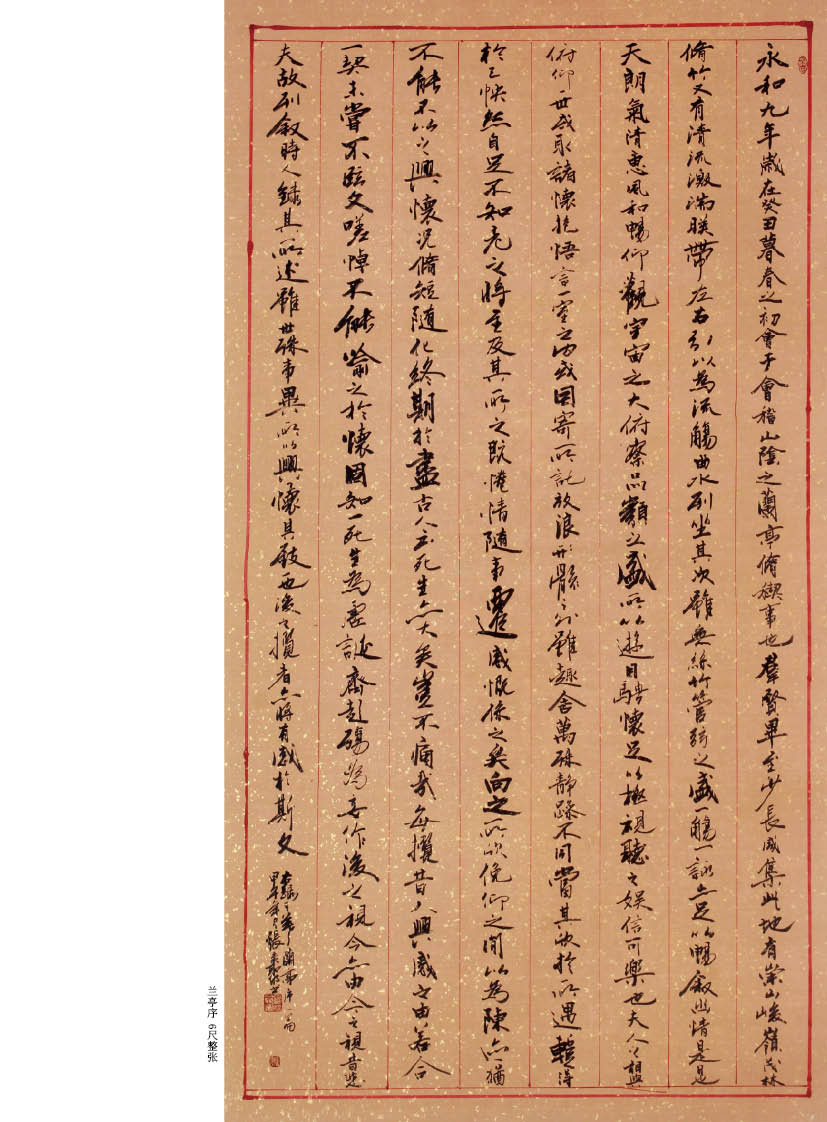 永和九年歲在癸丑暮春之初會于會稽山陰之蘭亭脩禊事也羣賢畢至少長咸集此地有崇山峻嶺茂林
脩竹又有清流激湍暎帶左右引以為流觴曲水列坐其次雖無絲竹管弦之盛一觴一詠亦足以暢叙幽情是日
天朗氣清惠風和暢仰觀宇宙之大俯察品類之盛所以遊目騁懷足以極視聽之娛信可樂也夫人之相與
俯仰一世或取諸懷抱悟言一室之內或因寄所託放浪形骸之外雖趣舍萬殊静躁不同當其欣於所遇蹔得
於己怏然自足不知老之將至及其所之既惓情随事遷感慨係之矣向之所欣俛仰之間以為陳迹猶
不能不以之興懷況脩短随化終期於盡古人云死生亦大矣豈不痛哉每攬昔人興感之由若合
一契未嘗不臨文嗟悼不能喻之於懷固知一死生為虛誕齊彭殤為妄作後之視今亦由今之視昔悲
夫故列叙時人録其所述雖世殊事異所以興懷其致一也後之攬者亦將有感於斯文
蘭亭序一篇
甲午年張
兰亭序 6尺整张